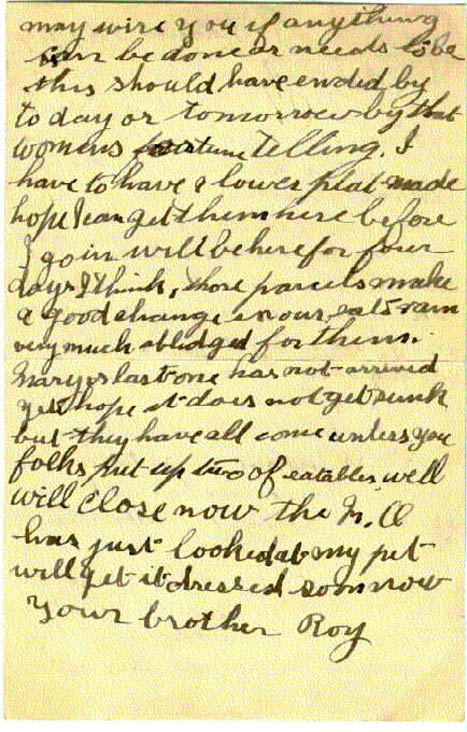 may wire you if anything
can be done or needs to be
this should have ended by
to day or tomorrow by that
womens fortune telling. I
have to have a lower plat made
hope I can get them here before
I go in will be here for four
days I think, those parcels make
a good change in our eats am
very much oblidged for them.
Marys last one has not arrived
yet hope it does not get sunk
but they have all come unless you
folks put up two of eatables well
will close now the M.O
has just looked at my
will get it dressed somnow
Your brother Roy